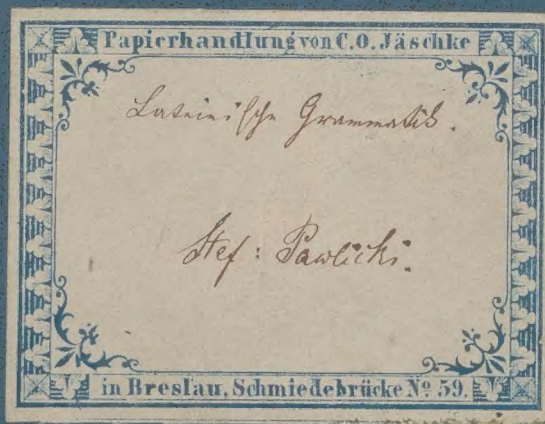 Papierhandlung von C.O. Jäschke
Lateinische Grammatik.
Stef: Pawlicki.
in Breslau, Schmiedebrücke No. 59.